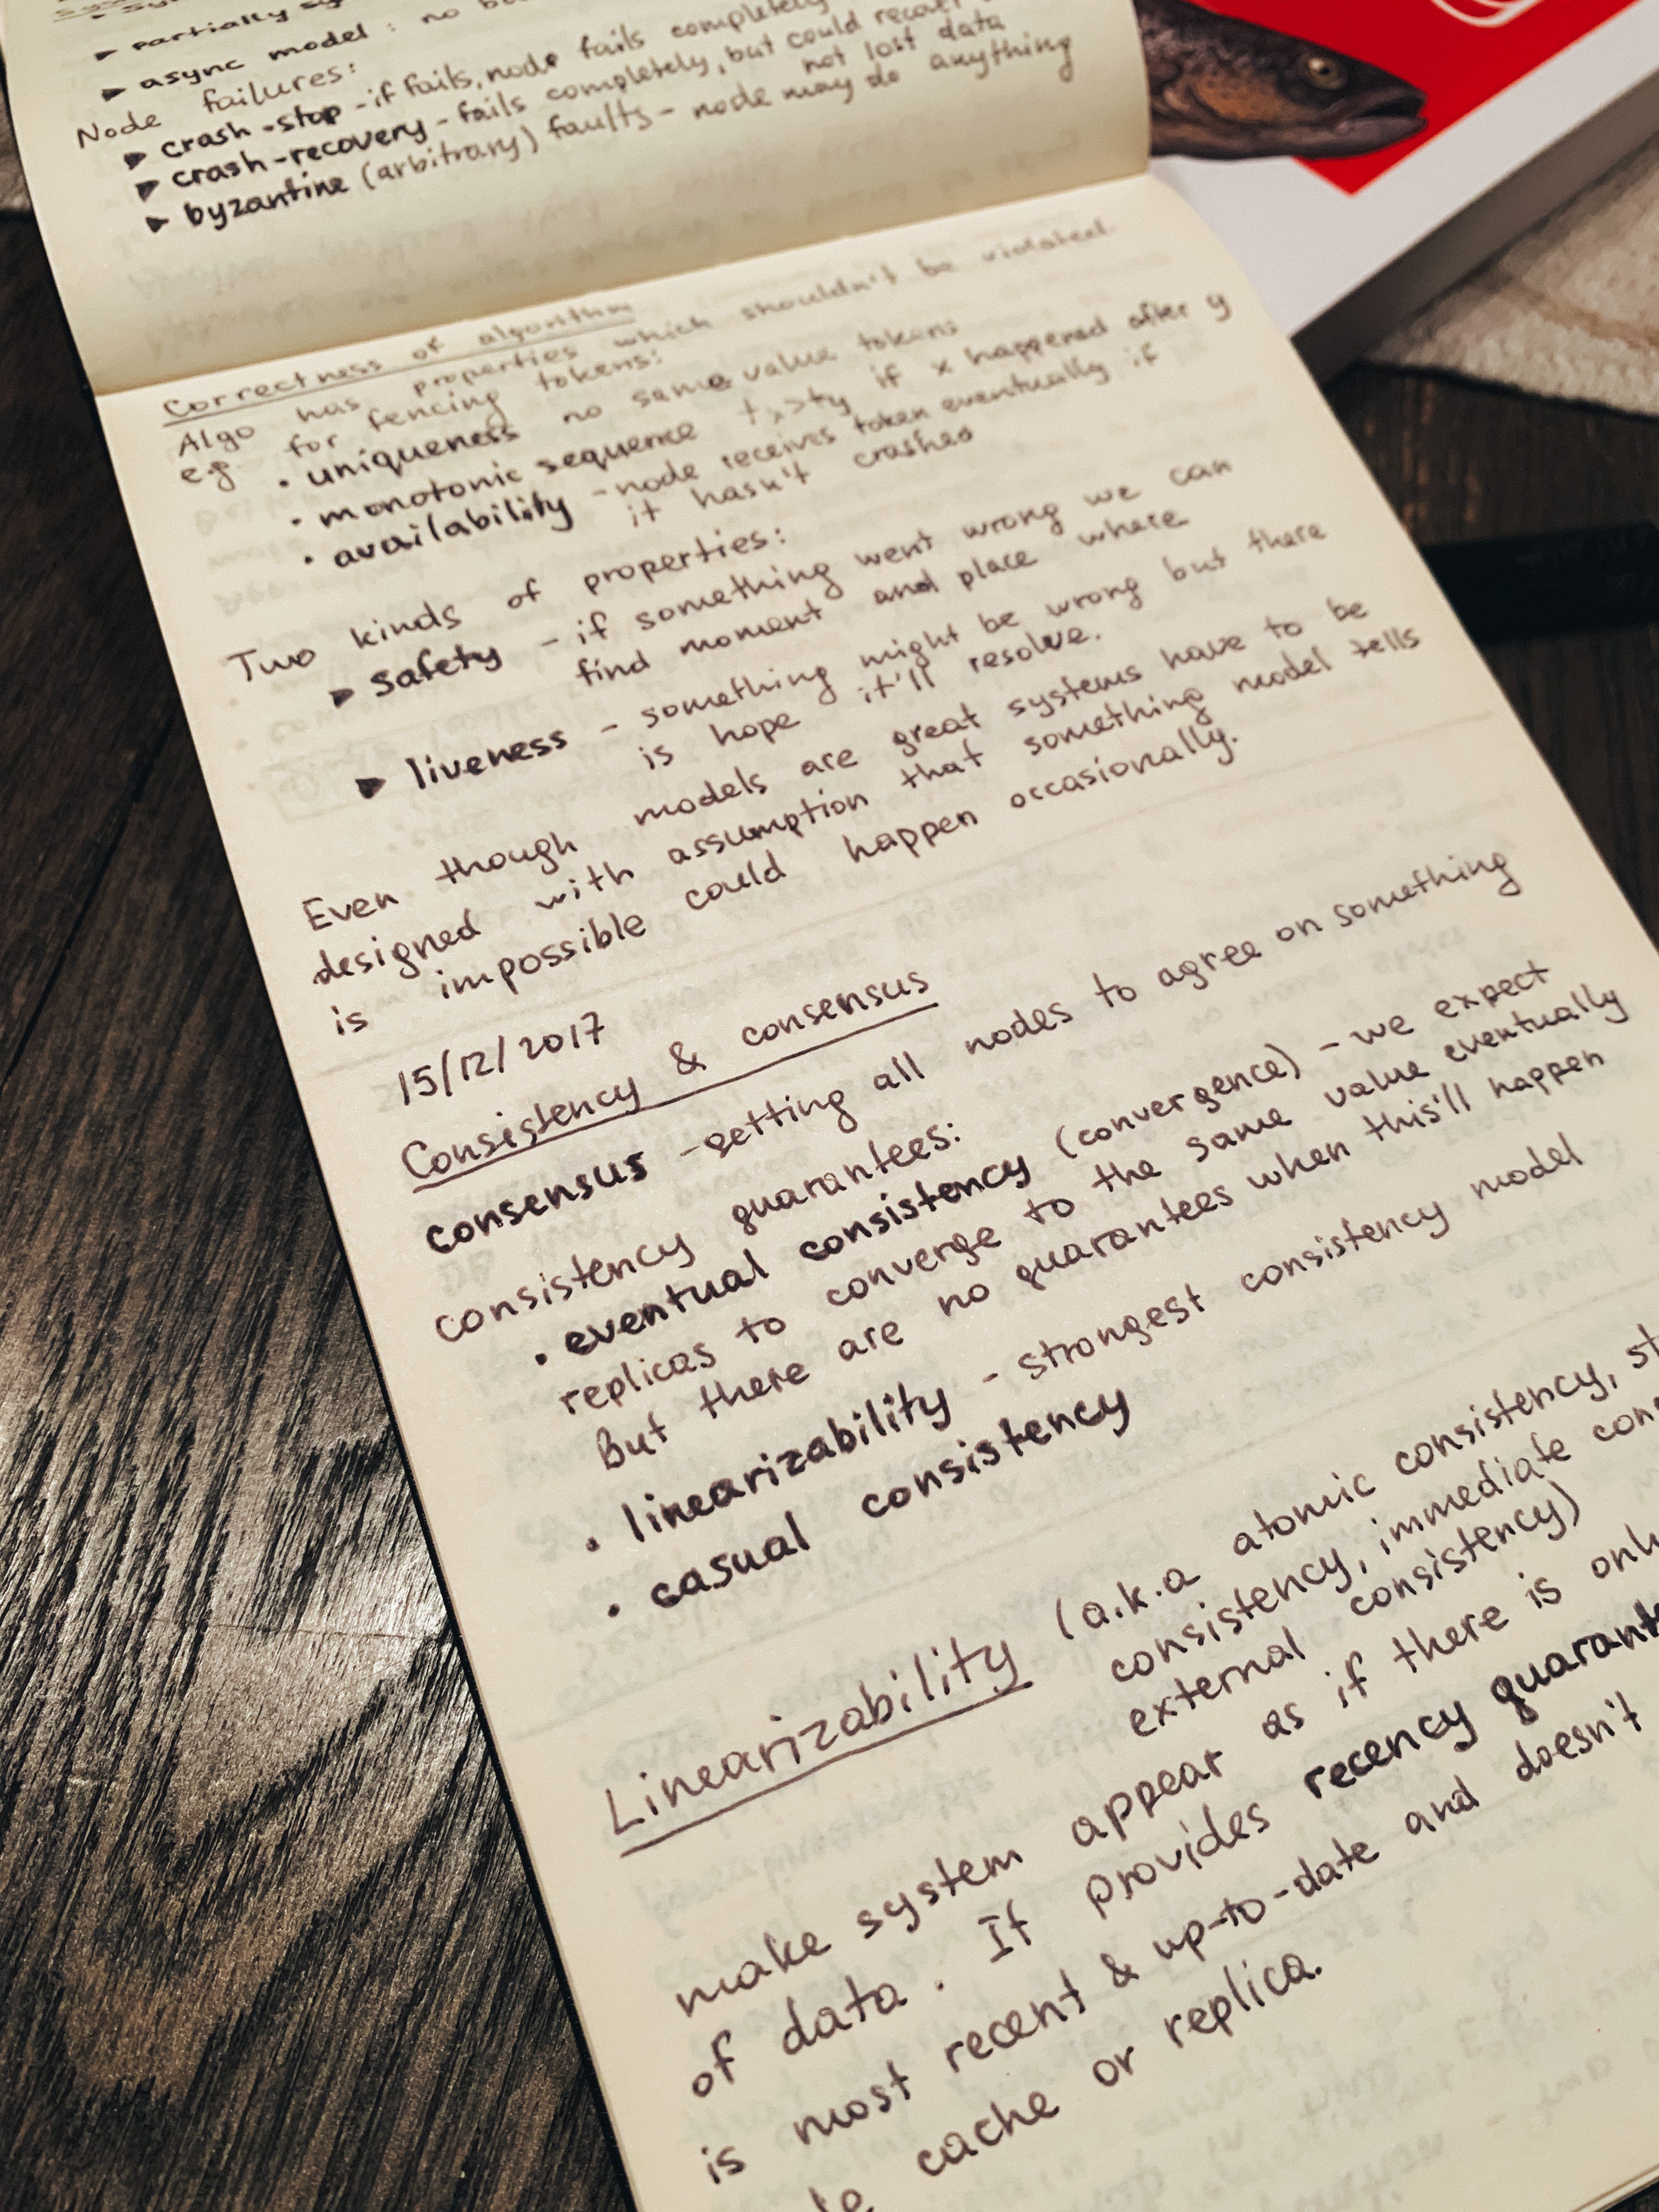 ▶ partially
▶ async model: no
Node failures:
▶ crash-stop - if fails, node fails completely
▶ crash-recovery - fails completely, but could recover
not lost data
▶ byzantine (arbitrary) faults - node may do anything
Correctness of algorithm
Algo has properties which shouldn't be violated.
e.g. for fencing tokens:
• uniqueness no same value tokens
• monotonic sequence tx>ty if x happened after y
• availability - node receives token eventually if
it hasn't crashed
Two kinds of properties:
▶ safety - if something went wrong we can
find moment and place where
▶ liveness - something might be wrong but there
is hope it'll resolve.
Even though models are great systems have to be
designed with assumption that something model tells
is impossible could happen occasionally.
15/12/2017
Consistency & consensus
consensus - getting all nodes to agree on something
consistency guarantees:
• eventual consistency (convergence) - we expect
replicas to converge to the same value eventually
But there are no guarantees when this'll happen
• linearizability - strongest consistency model
• casual consistency
Linearizability (a.k.a atomic consistency,
consistency, immediate
external consistency)
make system appear as if there is
of data. It provides recency
is most recent & up-to-date and doesn't
cache or replica.